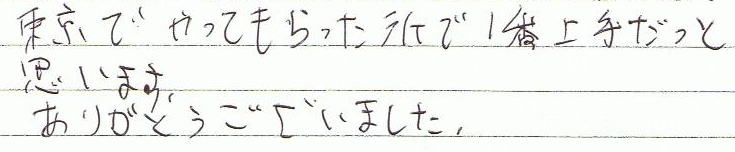 東京でやってもらった所で1番上手だっと
思います。
ありがとうございました。